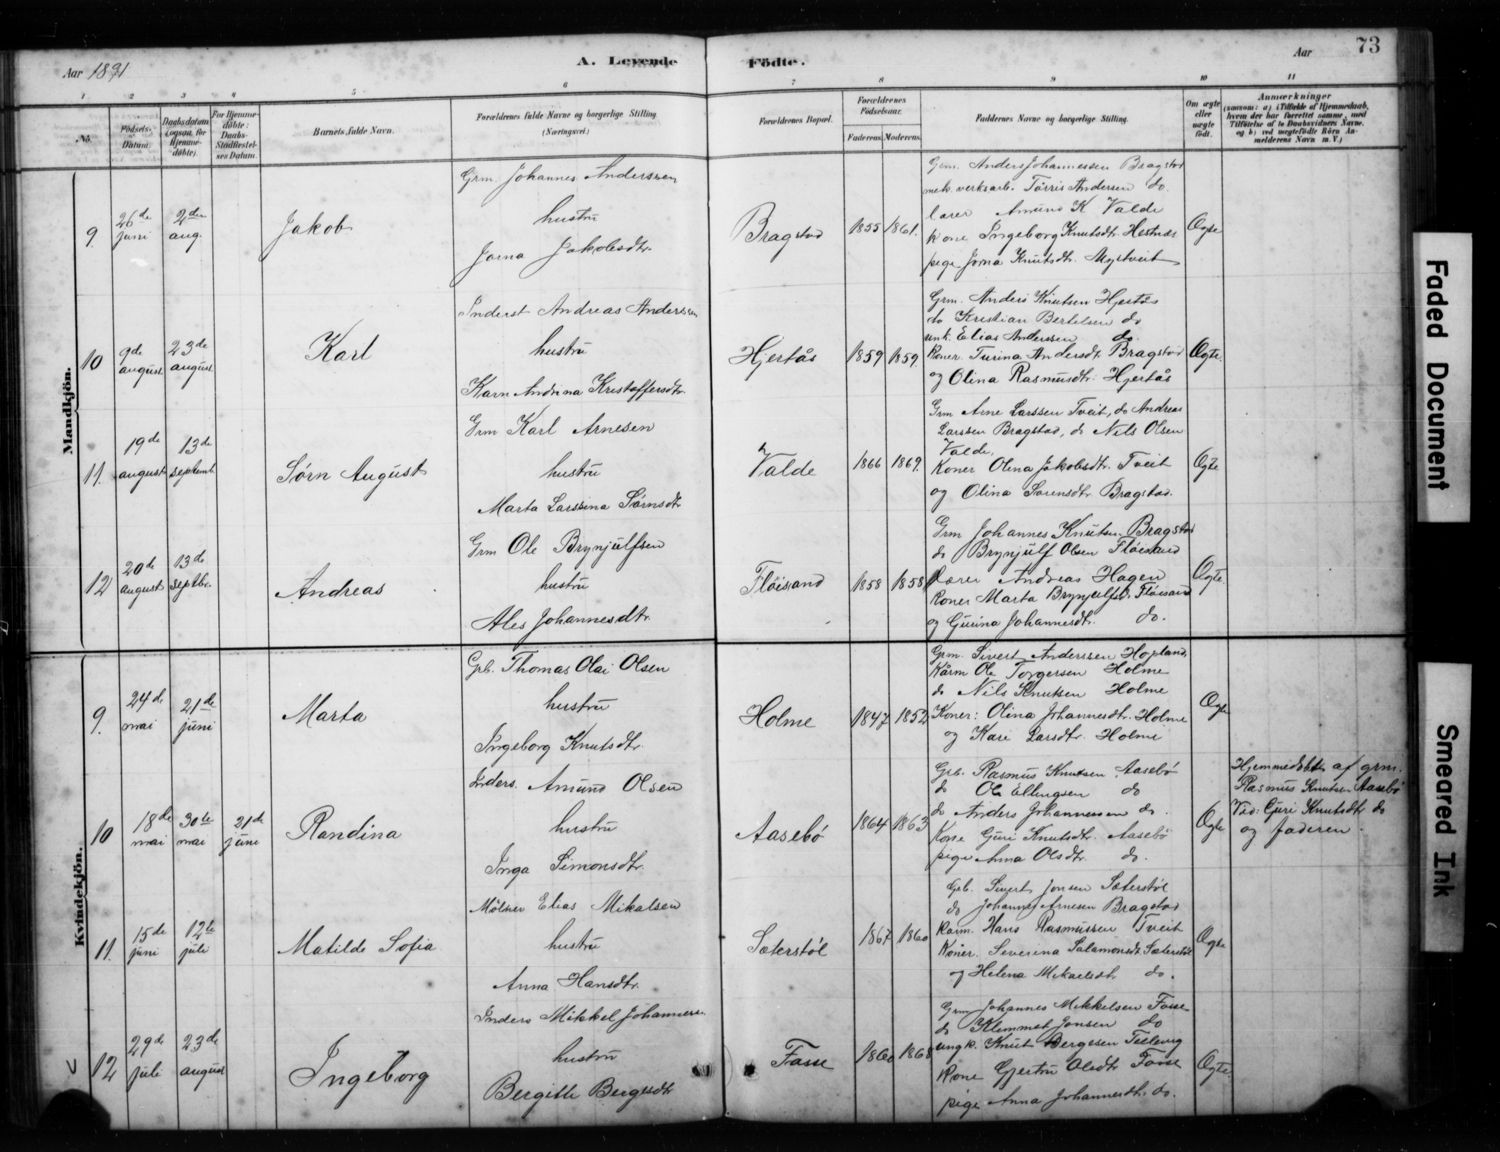 Aar 1891
A. Levende Födte.
Aar
73
1 2 3 4 5 6 7 8 9 10 11
No.
Födsels-Datum.
Daabsdatum (ogsaa for Hjemmedöbte).
For Hjemmedöbte: Daabs-Stadfæstelsens Datum.
Barnets fulde Navn.
Forældrenes fulde Navne og borgerlige Stilling (Næringsvei.)
Forældrenes Bopæl.
Forældrenes Födselsaar.
Faderens. Moderens.
Faddernes Navne og borgerlige Stilling.
Om ægte eller uægte födt.
Anmærkninger
(saasom: a) i Tilfælde af Hjemmedaab, hvem der har forrettet samme, med Tilföielse af to Daabsvidners Navne, og b) ved uegtefödte Börn Anmelderens Navn m. V.)
Mandkjön.
9. 26de juni 2den aug. Jakob
Grm. Johannes Anderssen
hustru
Jorna Jakobsdtr.
Bragstad 1855 1861.
Grm. Anders Johannessen Bragstad
mek. verksarb. Torris Andersen do.
lærer Amund K. Valde
kone Ingeborg Knutsdtr. Hestnes
pige Jorna Knutsdtr. Myrtveit
Ægte
10 9de august 23de august Karl
Inderst Andreas Anderssen
hustru
Karn Andrina Kristoffersdtr.
Hjertås 1859 1859.
Grm. Anders Knutsen Hjertås
do Kristian Bertelsen do
unk. Elias Anderssen do.
Koner. Turina Andersdt. Bragstad
og Olina Rasmusdtr. Hjertås
Ægte.
11. 19de august 13de septembr Sørn August
Grm Karl Arnesen
hustru
Marta Larssina Sørnsdtr
Valde 1866 1869.
Grm Arne Larssen Tveit, do Andreas
Larssen Bragstad, do Nils Olsen
Valde.
Koner Olena Jakobsdtr. Tveit
og Olina Sørensdtr. Bragstad.
Ægte
12 20de august 13de septbr. Andreas
Grm Ole Brynjulfsen
hustru
Ales Johannesdtr.
Fløisand 1858 1858
Grm Johannes Knutsen Bragstad
do Brynjulf Olsen Fløisand
Lærer Andreas Hagen
Koner Marta Brynjulfsd. Fløisand
og Gurina Johannesdtr. do.
Ægte.
Kvindekjön.
9. 24de mai 21de juni Marta
Grb. Thomas Olai Olsen
hustru
Ingeborg Knutsdtr.
Holme 1847 1852
Grm. Sivert Anderssen Hopland,
Kårm Ole Torgersen Holme
do Nils Knutsen Holme
Koner: Olina Johannesdtr. Holme
og Kari Larsdtr. Holme
Ægte
10 18de mai 30te mai 21de juni Randina
Inders. Amund Olsen
hustru
Inga Simonsdtr.
Aasebø 1864 1863
Grb. Rasmus Knutsen Aasebø
do Ole Ellingsen do
do Anders Johannessen do.
Kone Guri Knutsdtr. Aasebø
pige Anna Olsdtr. do.
Ægte
Hjemmedøbt af grm.
Rasmus Knutsen Aasebø
Vid: Guri Knutsdtr do
og faderen.
11. 15de juni 12te juli Matilde Sofia
Mølner Elias Mikalsen
hustru
Anna Hansdtr.
Sæterstøl 1867 1860
Grb. Sivert Jonsen Sæterstøl
do Johannes Arnesen Bragstad
Karm. Hans Rasmussen Tveit
Koner. Severina Salamonsdt. Sæterstøl
og Helena Mikaelsdt. do.
Ægte
V 12 29de juli 23de august Ingeborg
Inders Mikkel Johanness.
hustru
Bergitte Bergesdtr
Fosse 1860 1868
Grm Johannes Mikkelsen Fosse
do Klemmet Jonsen do
ungk. Knut Bergesen
Kone Gjertru Olsdtr Fosse
pige Anna Johannesdtr. do.
Ægte.
Faded Document
Smeared Ink